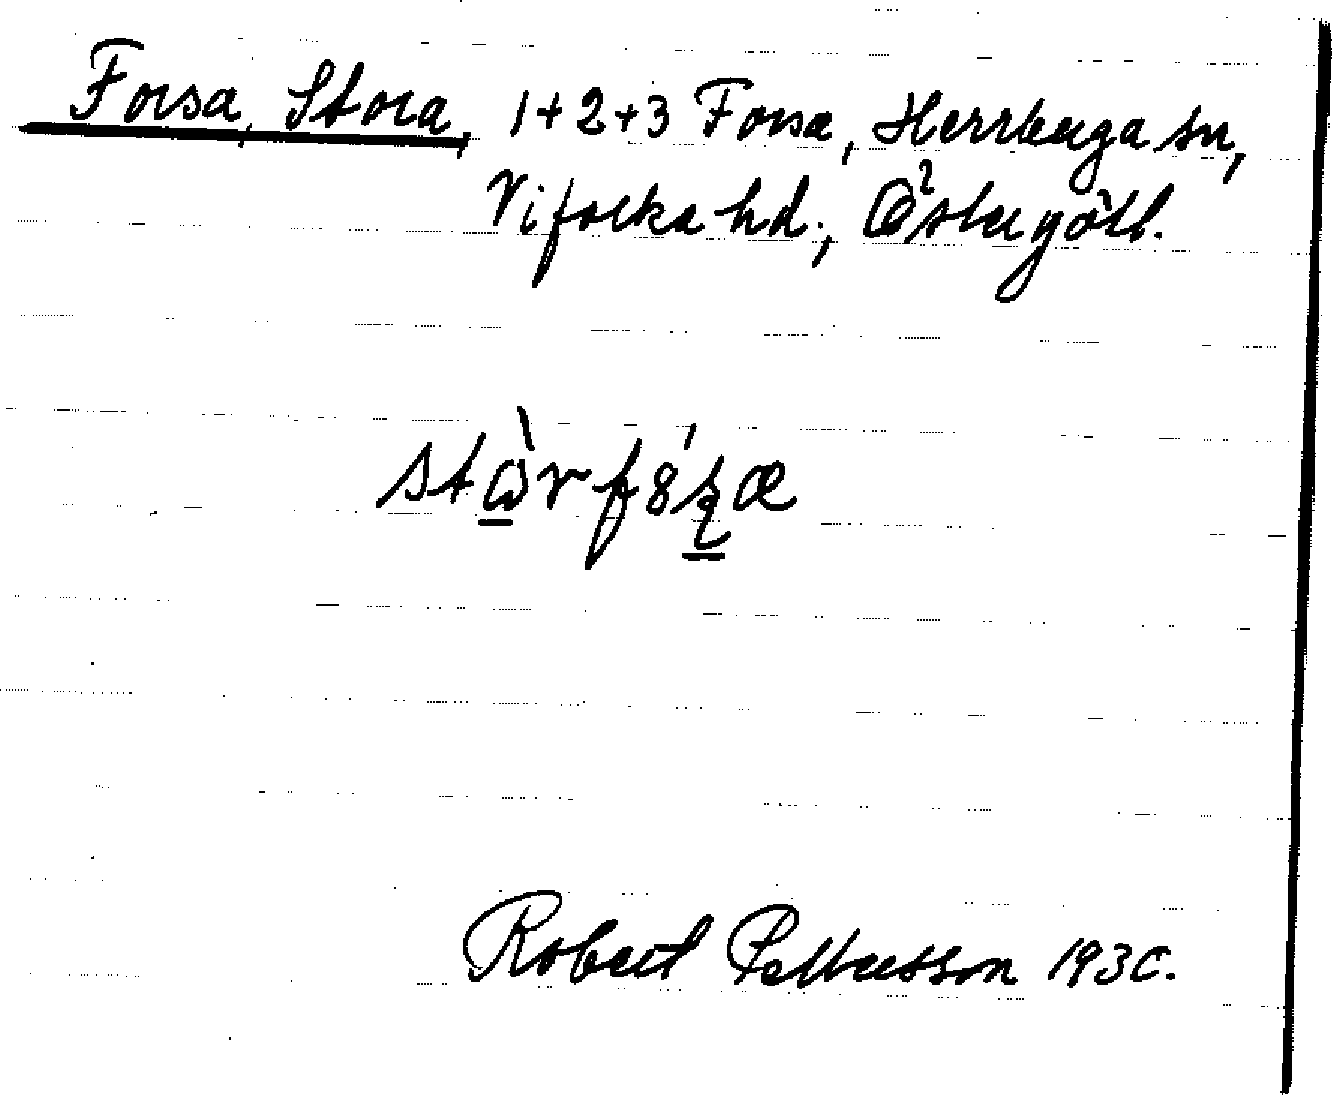 Forsa, Stora, 1+2+3 Forsa, Herrberga sn,
Vifolka hd., Östergötl.
Robert Pettersson 1930.